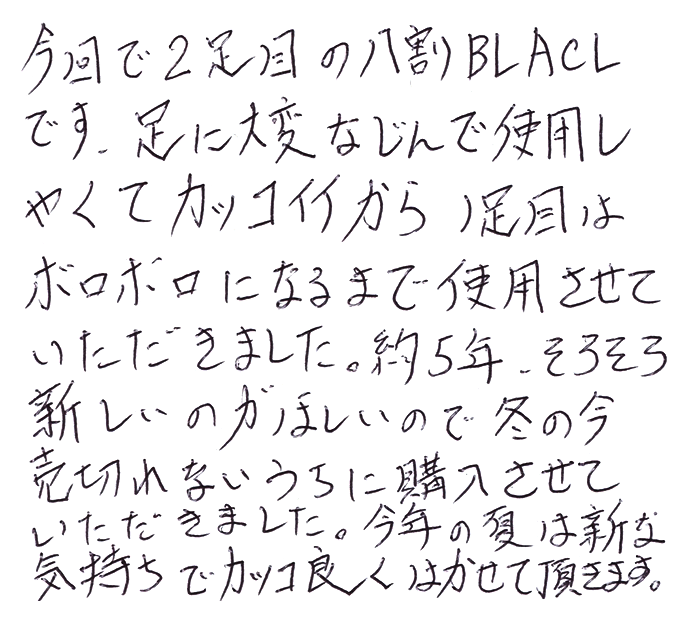 今回で2足目の八割BLACL
です。足に大変なじんで使用し
やくてカッコイイから1足目は
ボロボロになるまで使用させて
いただきました。約5年、そろそろ
新しいのがほしいので冬の今
売切れないうちに購入させて
いただきました。今年の夏は新な
気持ちでカッコ良くはかせて頂きます。